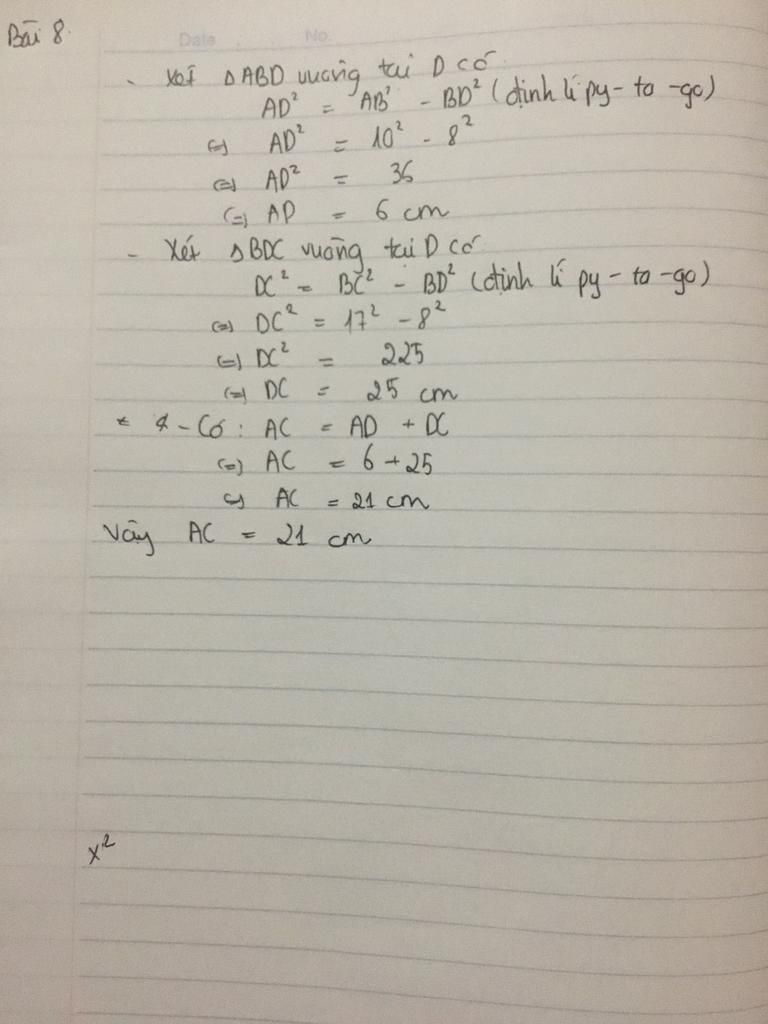 Bài 8.
Date No.
- Xét △ABD vuông tại D có
AD² = AB² - BD² (định lí py-ta-go)
(=) AD² = 10² - 8²
(=) AD² = 36
(=) AD = 6 cm
- Xét △BDC vuông tại D có
DC² = BC² - BD² (định lí py-ta-go)
(=) DC² = 17² - 8²
(=) DC² = 225
(=) DC = 25 cm
- Có : AC = AD + DC
(=) AC = 6 + 25
(=) AC = 21 cm
Vậy AC = 21 cm
x²